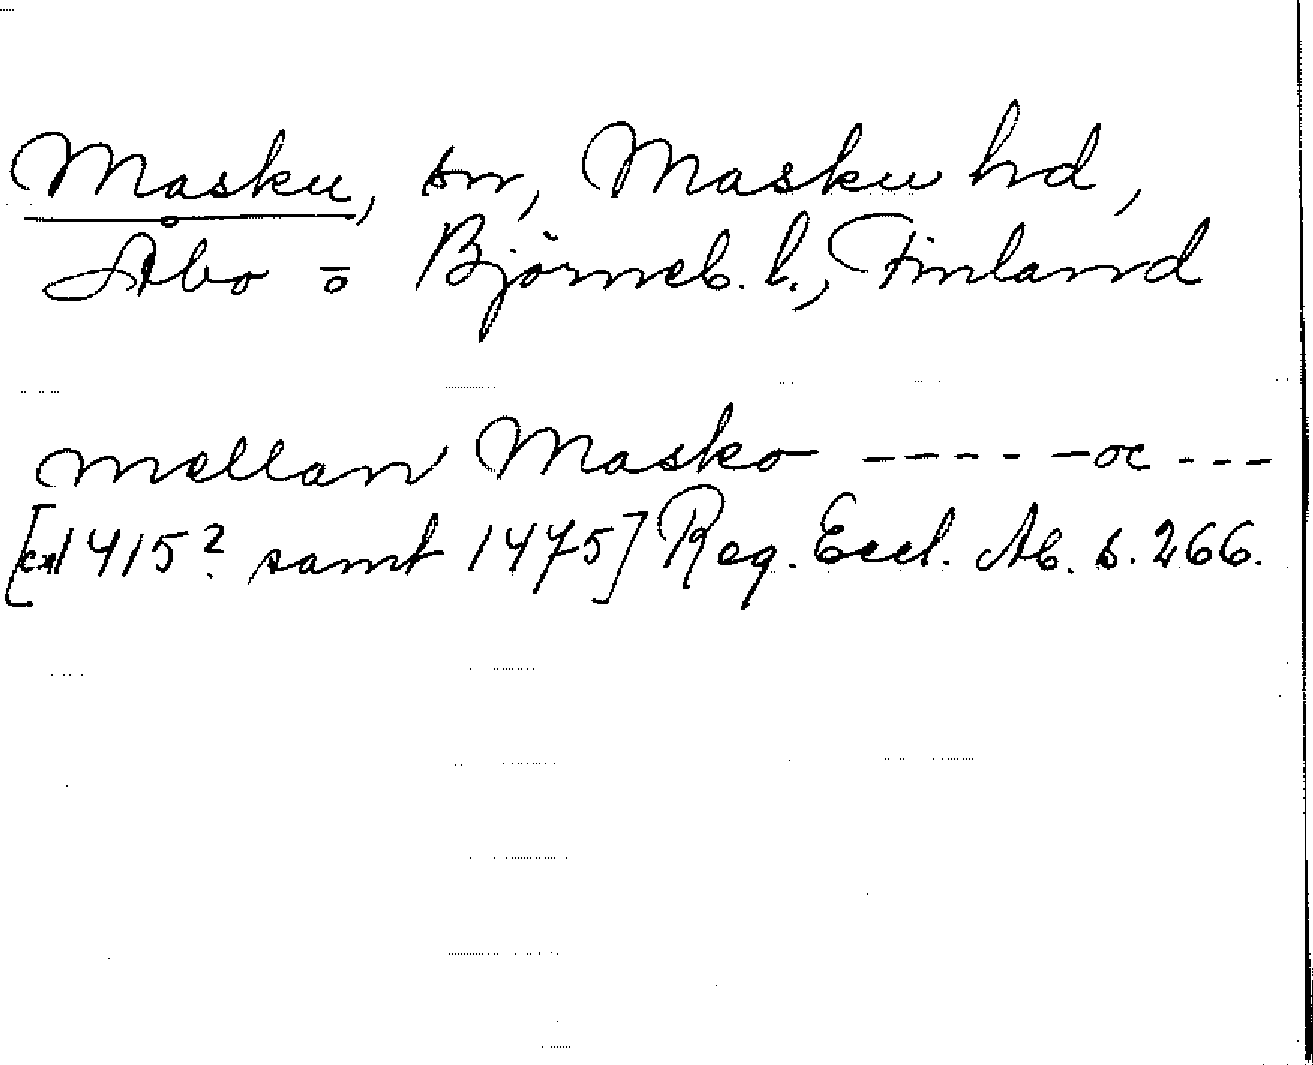 Masku, sn, Masku hd,
Åbo o Björneb. l., Finland
mellan Masko ----- oc ---
[1415? samt 1475] Reg. Eccl. Ab. s. 266.